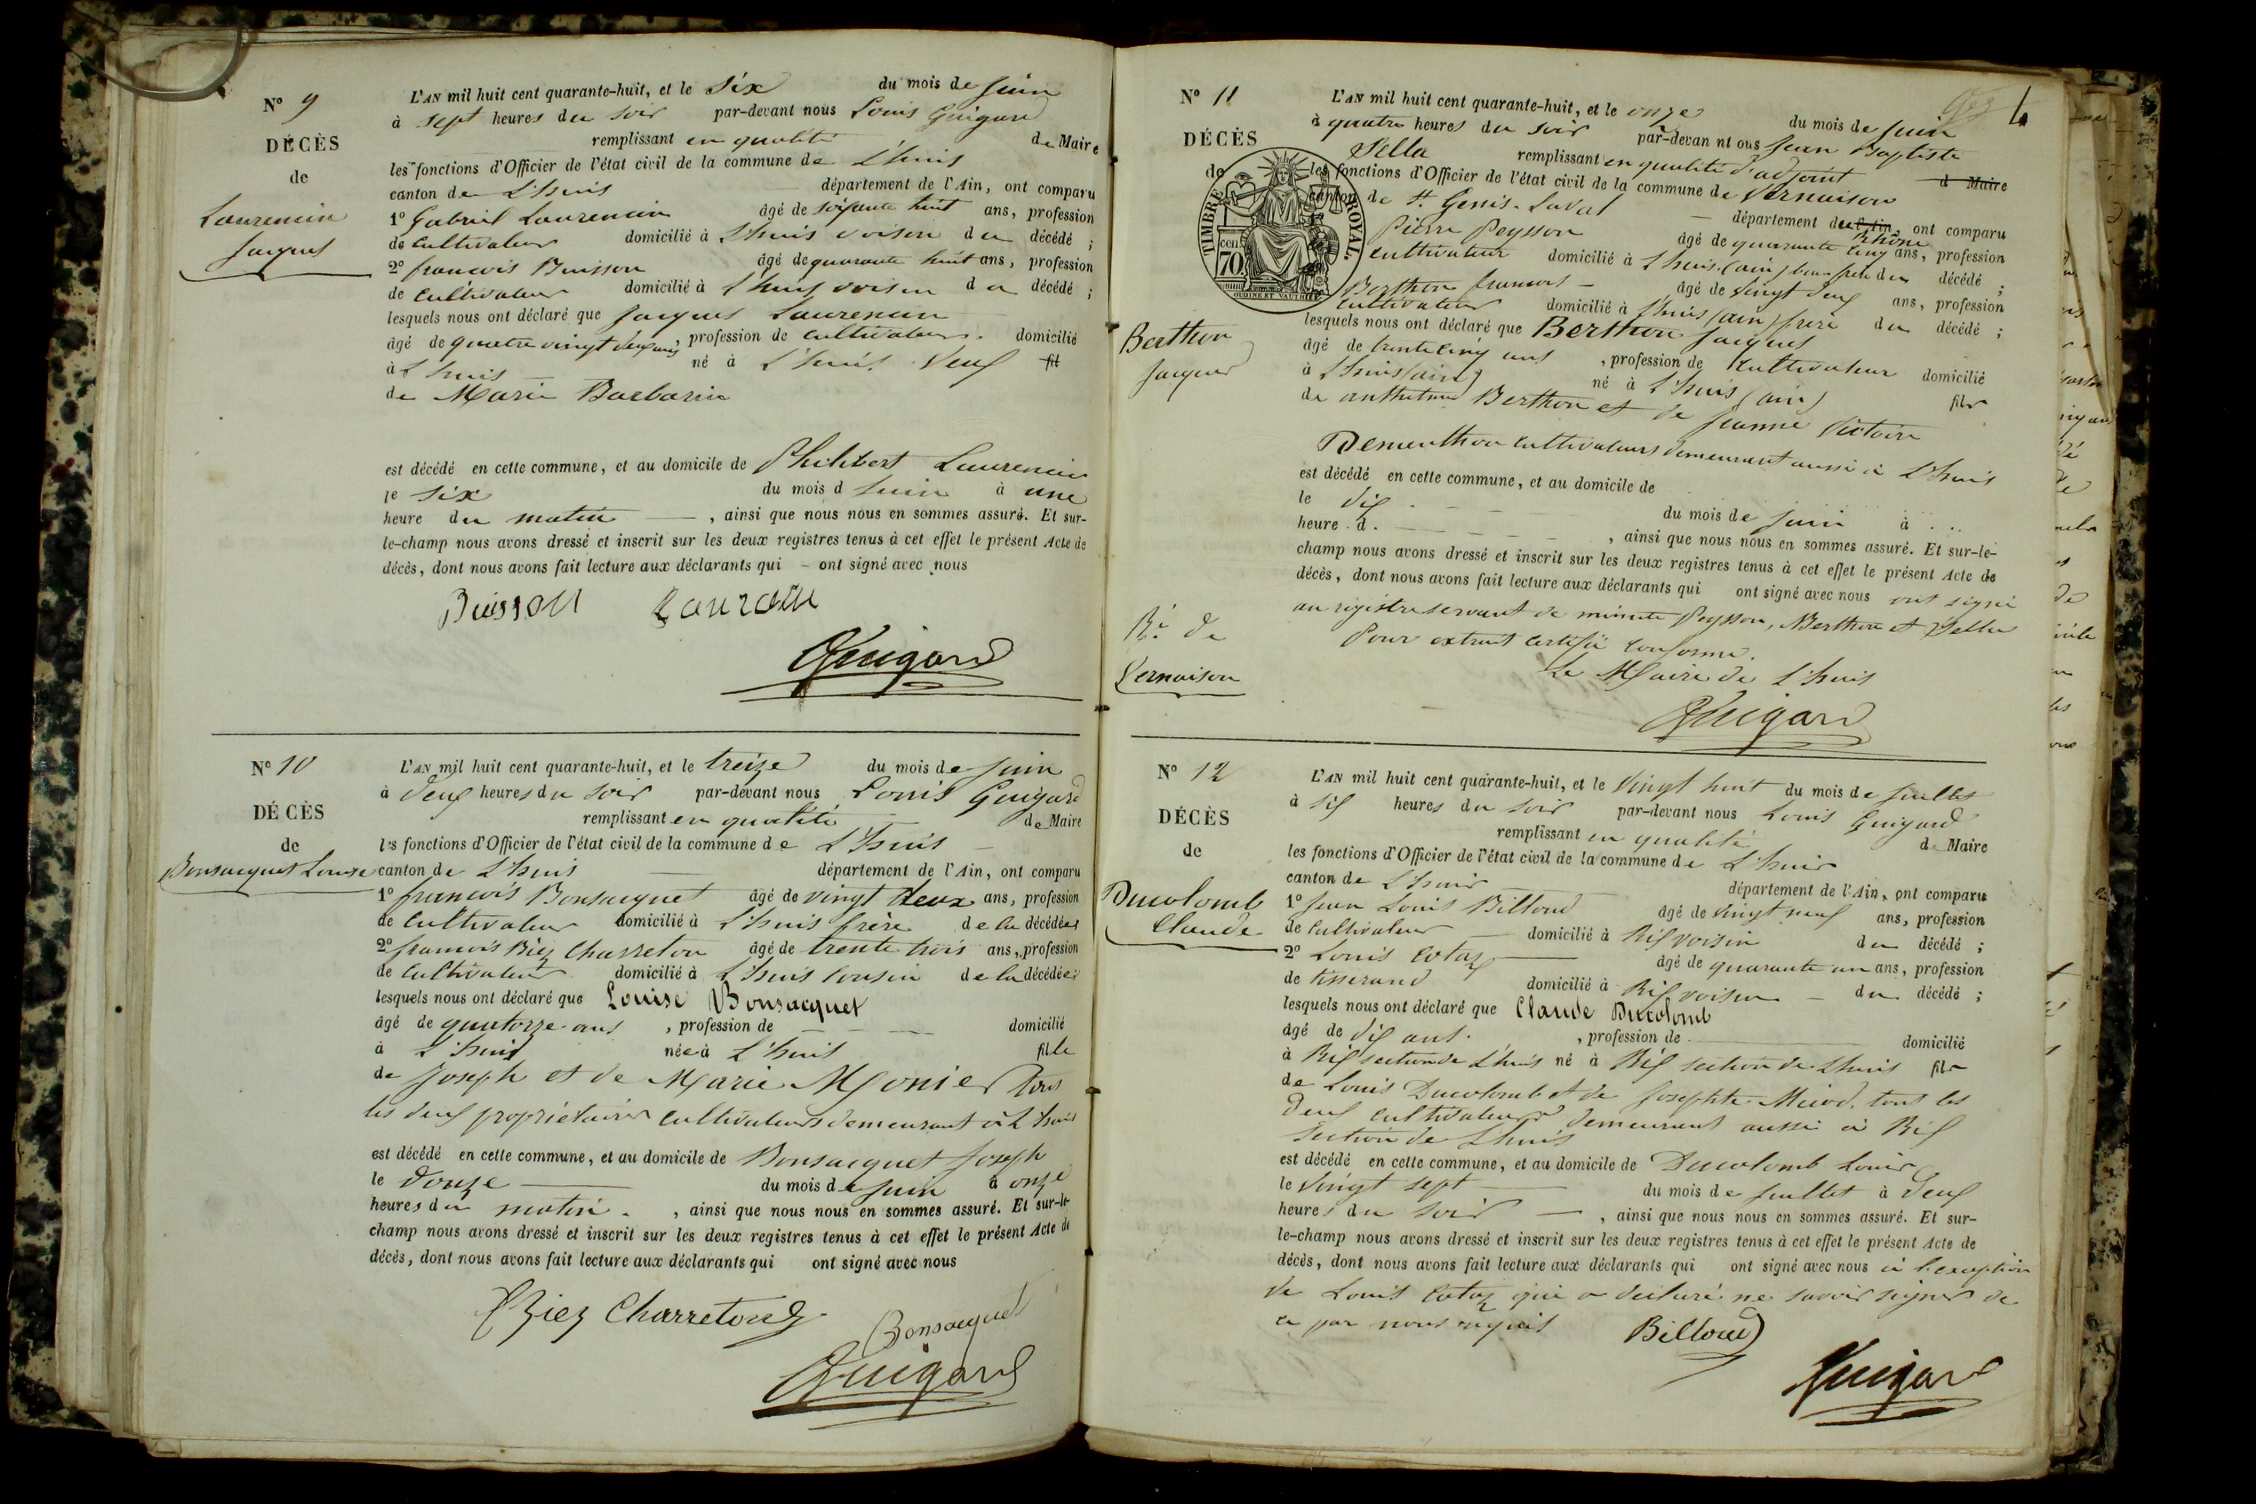 N° 9
DÉCÈS
de
Laurencin
Jacques
L'AN mil huit cent quarante-huit, et le six du mois de juin
à sept heures du soir par-devant nous Louis Guigard
remplissant en qualité de Maire
les fonctions d'Officier de l'état civil de la commune de L'huis
canton de L'huis département de l'Ain, ont comparu
1° Gabriel Laurencin âgé de soixante huit ans, profession
de cultivateur domicilié à L'huis voisin du décédé ;
2° francois Buisson âgé de quarante huit ans, profession
de cultivateur domicilié à L'huis voisin du décédé ;
lesquels nous ont déclaré que Jacques Laurencin
âgé de quatre vingt deux ans profession de cultivateur domicilié
à L'huis né à L'huis. Veuf fil
de Marie Barbarin
est décédé en cette commune, et au domicile de Philibert Laurencin
le six du mois d juin à une
heure du matin , ainsi que nous nous en sommes assuré. Et sur-
le-champ nous avons dressé et inscrit sur les deux registres tenus à cet effet le présent Acte de
décès, dont nous avons fait lecture aux déclarants qui ont signé avec nous
Buisson
Guigard
N° 10
DÉCÈS
de
Bonsacquet Louise
L'AN mil huit cent quarante-huit, et le treize du mois de juin
à deux heures du soir par-devant nous Louis Guigard
remplissant en qualité de Maire
les fonctions d'Officier de l'état civil de la commune de L'huis
canton de L'huis département de l'Ain, ont comparu
1° francois Bonsacquet âgé de vingt deux ans, profession
de cultivateur domicilié à L'huis frère de la décédée
2° francois Biez Charreton âgé de trente trois ans, profession
de cultivateur domicilié à L'huis cousin de la décédée
lesquels nous ont déclaré que Louise Bonsacquet
âgé de quatorze ans , profession de domicilié
à L'huis née à L'huis fille
de Joseph et de Marie Monier tous
les deux propriétaires cultivateurs demeurant à L'huis
est décédé en cette commune, et au domicile de Bonsacquet Joseph
le douze du mois de juin à onze
heures du matin , ainsi que nous nous en sommes assuré. Et sur-le-
champ nous avons dressé et inscrit sur les deux registres tenus à cet effet le présent Acte de
décès, dont nous avons fait lecture aux déclarants qui ont signé avec nous
Biez Charreton
Bonsacquet
Guigard
4
N° 11
DÉCÈS
de
TIMBRE ROYAL.
cen. 70
Berthon
Jacques
Ré de
Vernaison
L'AN mil huit cent quarante-huit, et le onze du mois de juin
à quatre heures du soir par-devan nt ous Jean Baptiste
Sella remplissant en qualité d'adjoint d Maire
les fonctions d'Officier de l'état civil de la commune de Vernaison
canton de St Genis-Laval département de l'Ain, Rhône ont comparu
Pierre Peysson âgé de quarante cinq ans, profession
cultivateur domicilié à L'huis (ain) beau frère du décédé ;
Berthon francois âgé de vingt deux ans, profession
cultivateur domicilié à L'huis (ain) frère du décédé ;
lesquels nous ont déclaré que Berthon Jacques
âgé de trente cinq ans , profession de cultivateur domicilié
à L'huis (ain) né à L'huis (ain) fils
de anthelme Berthon et de Jeanne Victoire
Dementhon cultivateurs demeurant aussi à L'huis
est décédé en cette commune, et au domicile de
le dix du mois de juin à
heure d. , ainsi que nous nous en sommes assuré. Et sur-le-
champ nous avons dressé et inscrit sur les deux registres tenus à cet effet le présent Acte de
décès, dont nous avons fait lecture aux déclarants qui ont signé avec nous ont signé
au registre servant de minute Peysson, Berthon et Sella
Pour extrait certifié conforme.
Le Maire de L'huis
Guigard
N° 12
DÉCÈS
de
Ducolomb
Claude
L'AN mil huit cent quarante-huit, et le vingt huit du mois de juillet
à six heures du soir par-devant nous Louis Guigard
remplissant en qualité de Maire
les fonctions d'Officier de l'état civil de la commune de L'huis
canton de L'huis département de l'Ain, ont comparu
1° Jean Louis Billoud âgé de vingt neuf ans, profession
de cultivateur domicilié à Rix voisin du décédé ;
2° Louis Cotaz âgé de quarante un ans, profession
de tisserand domicilié à Rix voisin du décédé ;
lesquels nous ont déclaré que Claude Ducolomb
âgé de dix ans. , profession de domicilié
à Rix section de L'huis né à Rix section de L'huis fils
de Louis Ducolomb et de Josephte tous les
deux cultivateurs demeurant aussi à Rix
section de L'huis
est décédé en cette commune, et au domicile de Ducolomb Louis
le vingt sept du mois de juillet à deux
heures du soir , ainsi que nous nous en sommes assuré. Et sur-
le-champ nous avons dressé et inscrit sur les deux registres tenus à cet effet le présent Acte de
décès, dont nous avons fait lecture aux déclarants qui ont signé avec nous à l'exception
de Louis Cotaz qui a déclaré ne savoir signer de
ce par nous requis
Billoud
Guigard